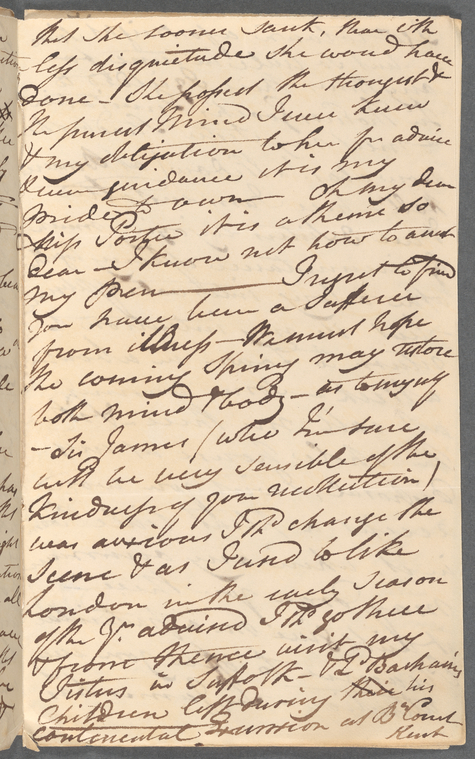 that she sooner sank, than with
less disquietude she would have
done - She possest the strongest &
the purest Mind I ever knew
& my obligation to her for advice
& even guidance it is my
pride to own - Oh my dear
Miss Porter it is a theme so
dear - I know not how to arrest
my Pen ——— I regret to find
you have been a Sufferer
from illness - We must hope
the coming Spring may restore
both mind & body - as to myself
- Sir James (who I'm sure
will be very sensible of the
Kindness of your recollection)
was anxious I shd change the
Scene & as I used to like
London in the early season
of the Yr advised I shd go there
& from thence visit my
Sisters in Suffolk - & Ld
Children left during his
Continental Excursion at Bn Court
Kent